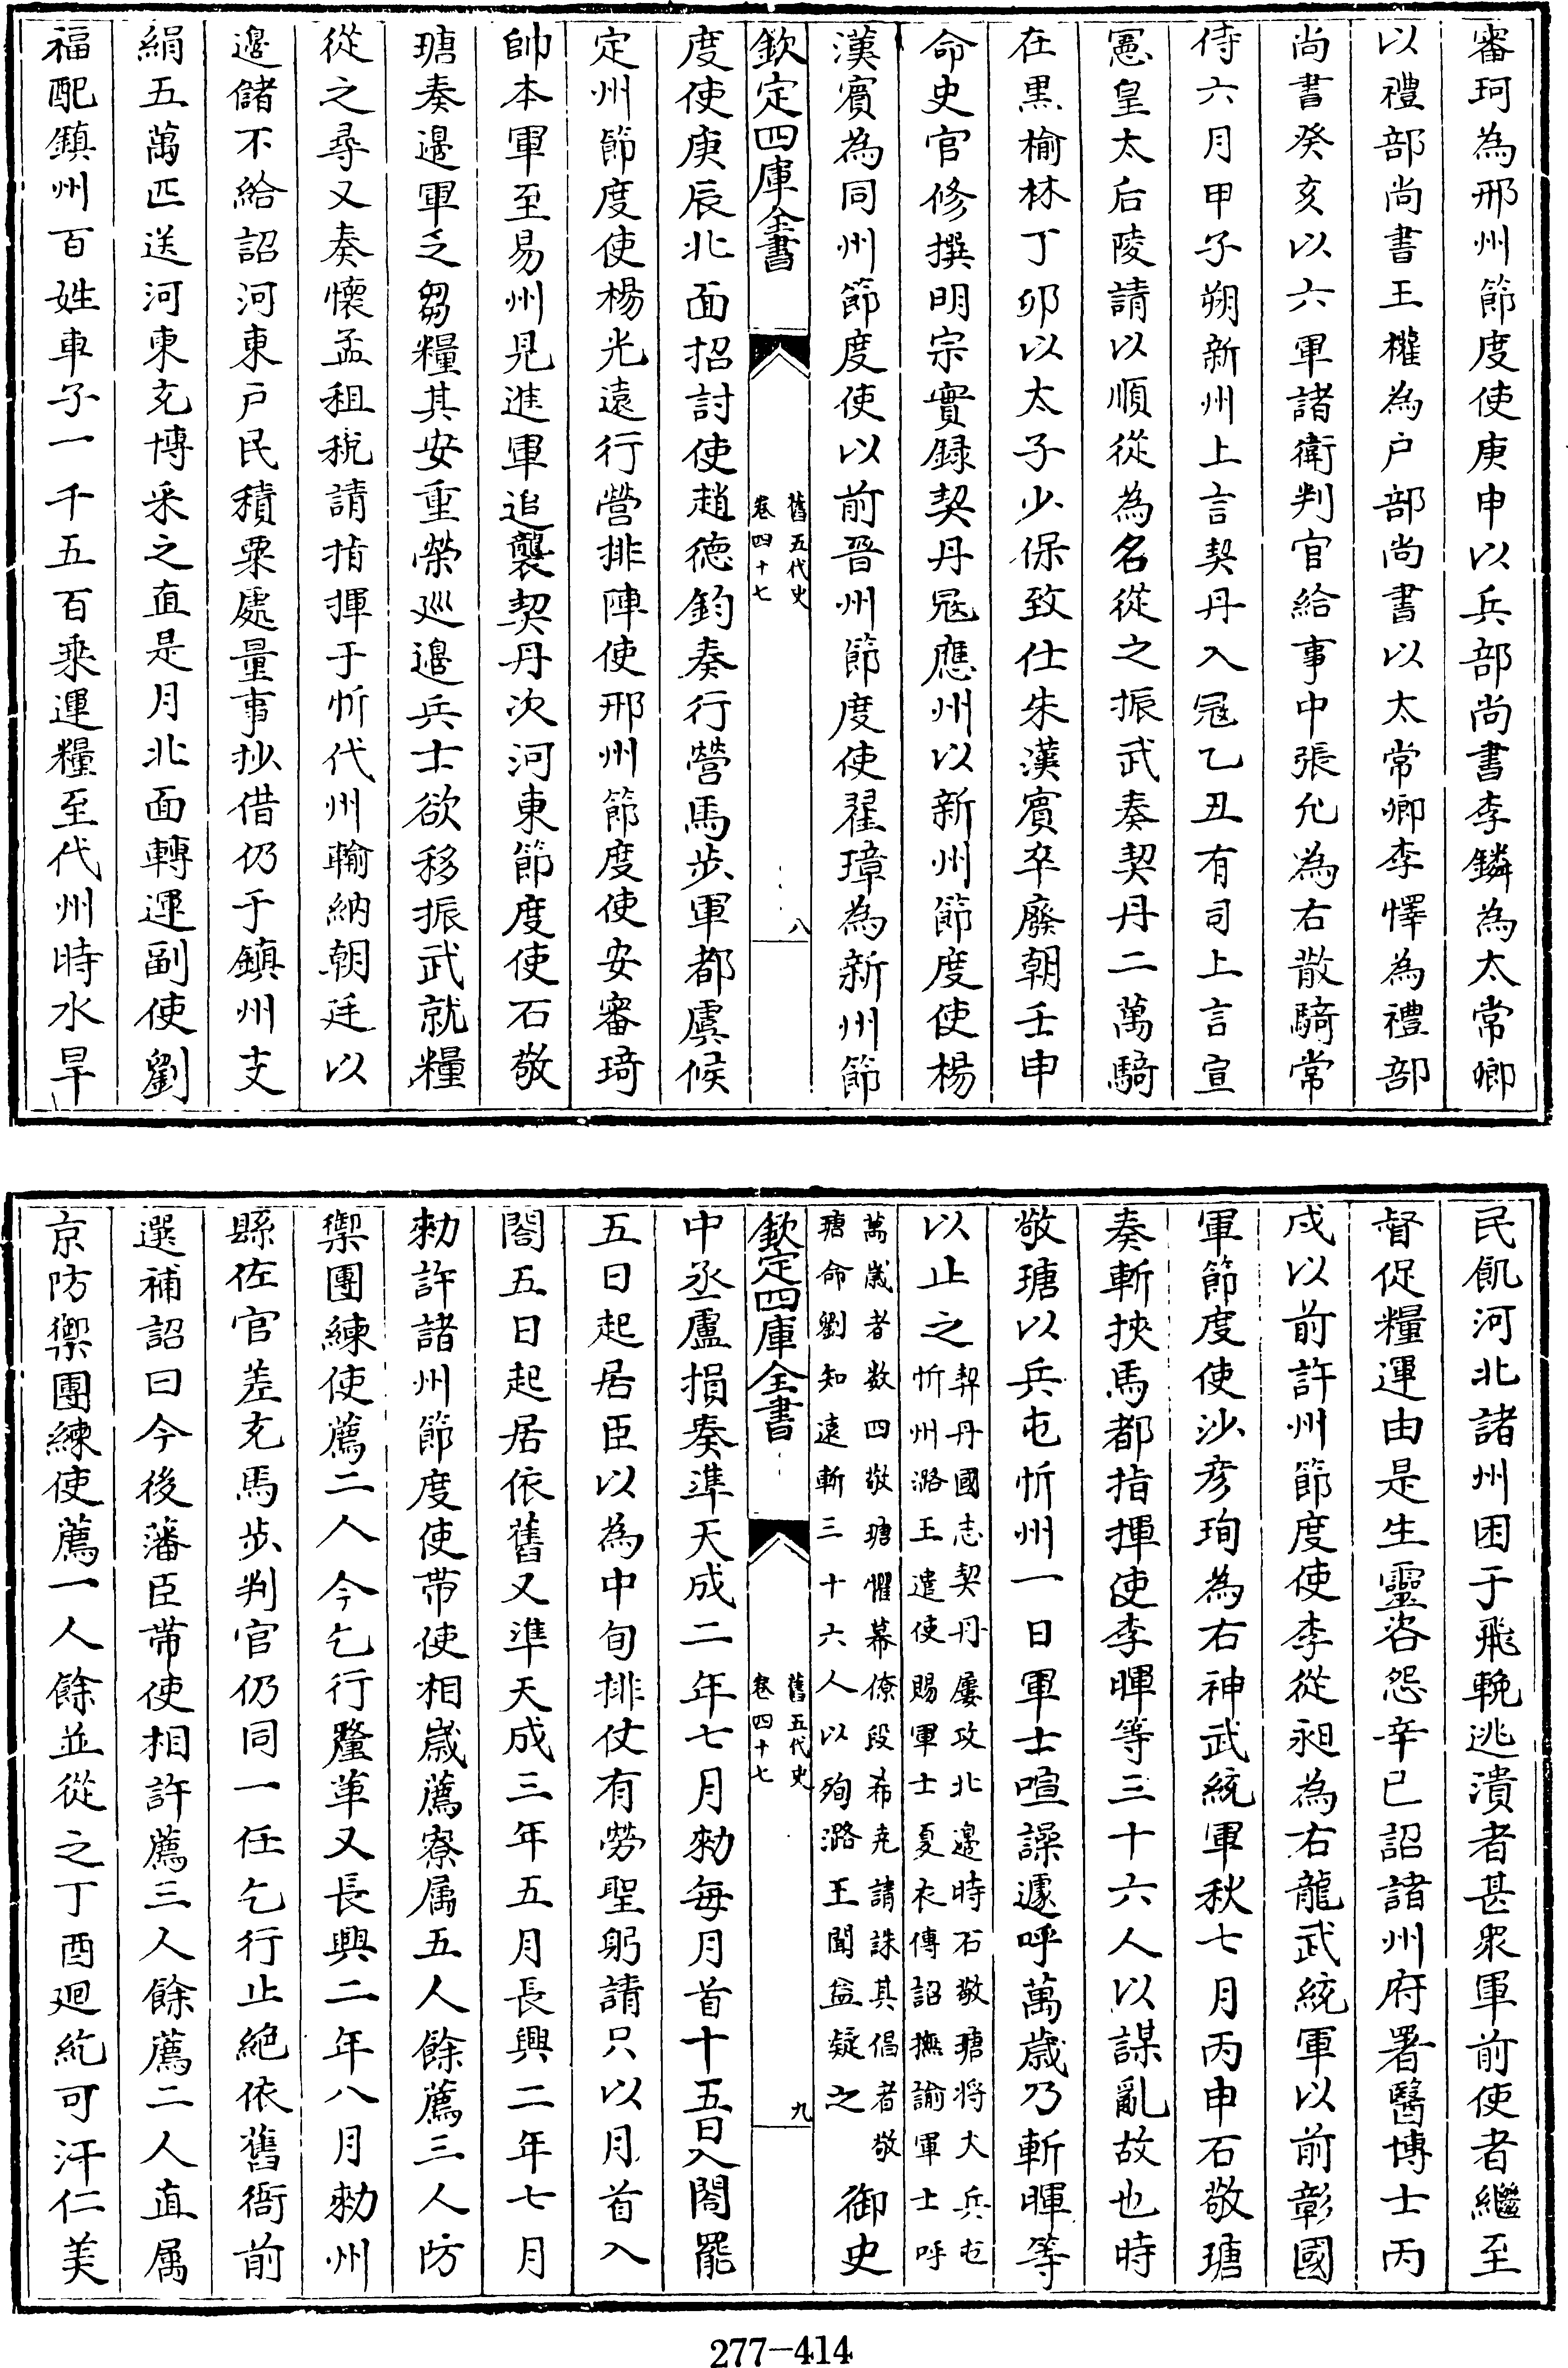 審珂為邢州節度使庚申以兵部尚書李鏻為太常卿
以禮部尚書王權為户部尚書以太常卿李懌為禮部
尚書癸亥以六軍諸衛判官給事中張允為右散騎常
侍六月甲子朔新州上言契丹入冦乙丑有司上言宣
憲皇太后陵請以順從為名從之振武奏契丹二萬騎
在黒榆林丁卯以太子少保致仕朱漢賓卒廢朝壬申
命史官修撰明宗實録契丹冦應州以新州節度使楊
漢賓為同州節度使以前晉州節度使翟璋為新州節
欽定四庫全書
舊五代史
卷四十七
八
度使庚辰北面招討使趙德鈞奏行營馬步軍都虞候
定州節度使楊光遠行營排陣使邢州節度使安審琦
帥本軍至易州見進軍追襲契丹次河東節度使石敬
瑭奏邊軍乏芻糧其安重榮巡邊兵士欲移振武就糧
從之尋又奏懷孟租稅請指揮于忻代州輸納朝廷以
邊儲不給詔河東户民積粟處量事抄借仍于鎮州支
絹五萬匹送河東充博采之直是月北面轉運副使劉
福配鎮州百姓車子一千五百乘運糧至代州時水旱
民飢河北諸州困于飛輓逃潰者甚衆軍前使者繼至
督促糧運由是生靈咨怨辛巳詔諸州府署醫博士丙
戌以前許州節度使李從昶為右龍武統軍以前彰國
軍節度使沙彦珣為右神武統軍秋七月丙申石敬瑭
奏斬挾馬都指揮使李暉等三十六人以謀亂故也時
敬瑭以兵屯忻州一日軍士喧譟遽呼萬歲乃斬暉等
以止之契丹國志契丹屢攻北邊時石敬瑭将大兵屯
忻州潞王遣使賜軍士夏衣傳詔撫諭軍士呼
萬歲者数四敬瑭懼幕僚段希尭請誅其倡者敬
瑭命劉知遠斬三十六人以殉潞王聞益疑之御史
欽定四庫全書
舊五代史
卷四十七
九
中丞盧損奏準天成二年七月勅每月首十五日入閤罷
五日起居臣以為中旬排仗有勞聖躬請只以月首入
閤五日起居依舊又準天成三年五月長興二年七月
勅許諸州節度使帶使相歲薦寮属五人餘薦三人防
禦團練使薦二人今乞行釐革又長興二年八月勅州
縣佐官差充馬步判官仍同一任乞行止絶依舊衙前
選補詔曰今後藩臣帶使相許薦三人餘薦二人直属
京防禦團練使薦一人餘並從之丁酉廻紇可汗仁美
277-414